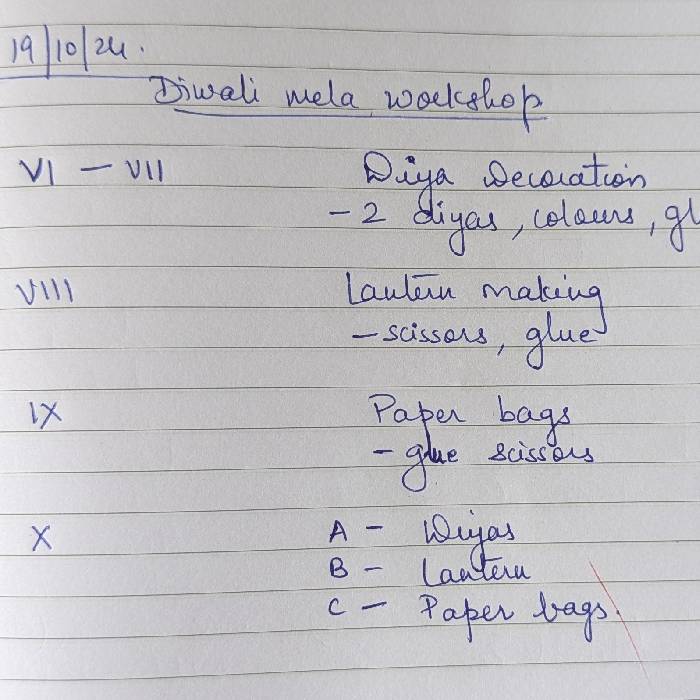 19/10/24.
Diwali mela workshop
VI – VII Diya Decoration
- 2 diyas, colours,
VIII Lantern making
- scissors, glue
IX Paper bags
- glue scissors
X A - Diyas
B - Lantern
C - Paper bags.